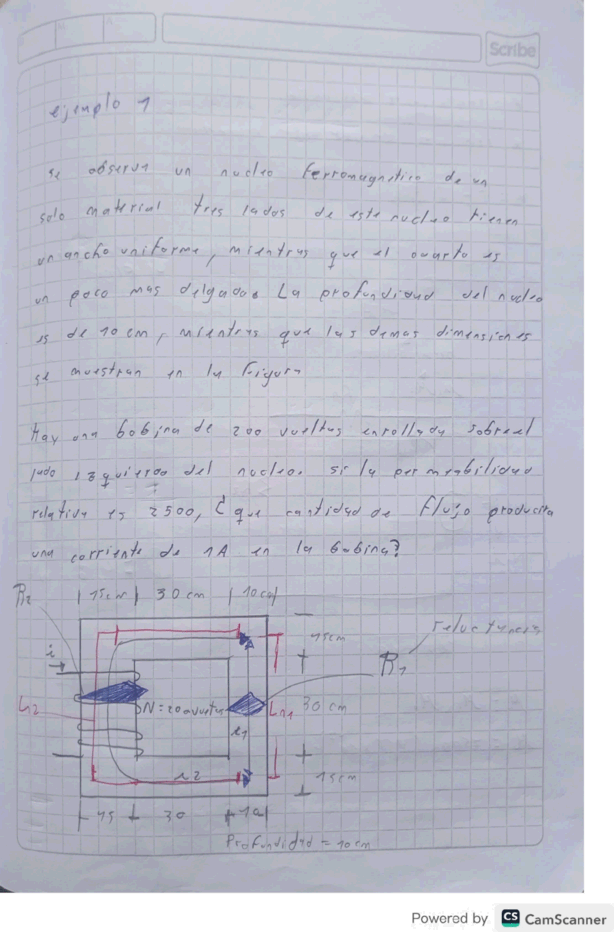 Scribe
ejemplo 1
se observa un nucleo ferromagnetico de un
solo material tres lados de este nucleo tienen
un ancho uniforme, mientras que el cuarto es
un poco mas delgado. La profundidad del nucleo
es de 10 cm, mientras que las demas dimensiones
se muestran en la figura
Hay una bobina de 200 vueltas enrollada sobre el
lado izquierdo del nucleo. si la permeabilidad
relativa es 2500, ¿ que cantidad de flujo producira
una corriente de 1A en la bobina?
R2 15cm 30 cm 10cm
reluctancia
i
15cm
R1
L2 N=200 vueltas Ln1 30 cm
l1
l2
15cm
15 30 10
Profundidad = 10 cm
Powered by CS CamScanner